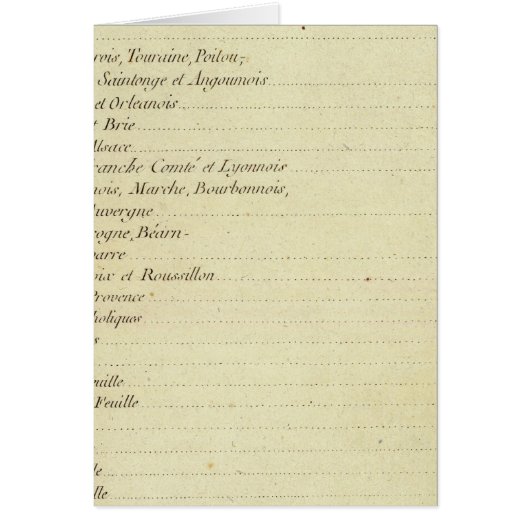 rois, Touraine, Poitou,
Saintonge et Angoumois
et Orleanois
t Brie
Alsace
ranche Comté et Lyonnois
nois, Marche, Bourbonnois,
Auvergne
cogne, Béarn-
varre
oix et Roussillon
Provence
holiques
s
euille
Feuille
le
lle